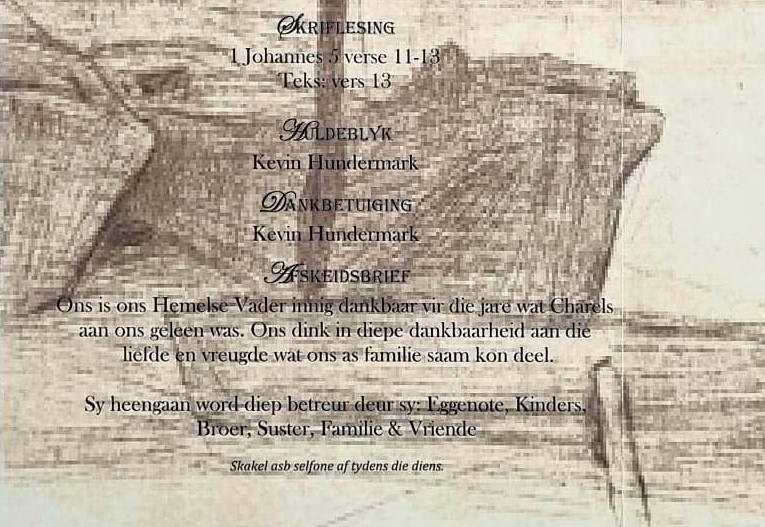 SKRIFLESING
1 Johannes 5 verse 11-13
Teks: vers 13
HULDEBLYK
Kevin Hundermark
DANKBETUIGING
Kevin Hundermark
AFSKEIDSBRIEF
Ons is ons Hemelse Vader innig dankbaar vir die jare wat Charels
aan ons geleen was. Ons dink in diepe dankbaarheid aan die
liefde en vreugde wat ons as familie saam kon deel.
Sy heengaan word diep betreur deur sy: Eggenote, Kinders,
Broer, Suster, Familie & Vriende
Skakel asb selfone af tydens die diens.